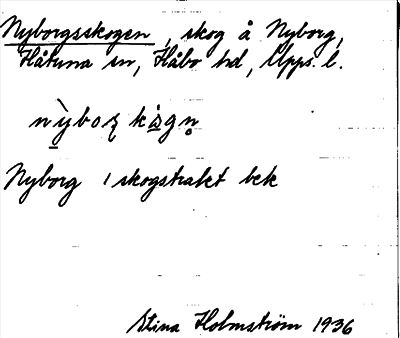 Nyborgsskogen, skog å Nyborg,
Håtuna sn, Håbo hd, Upps. l.
Nyborg / skogstrakt bek
Stina Holmström 1936